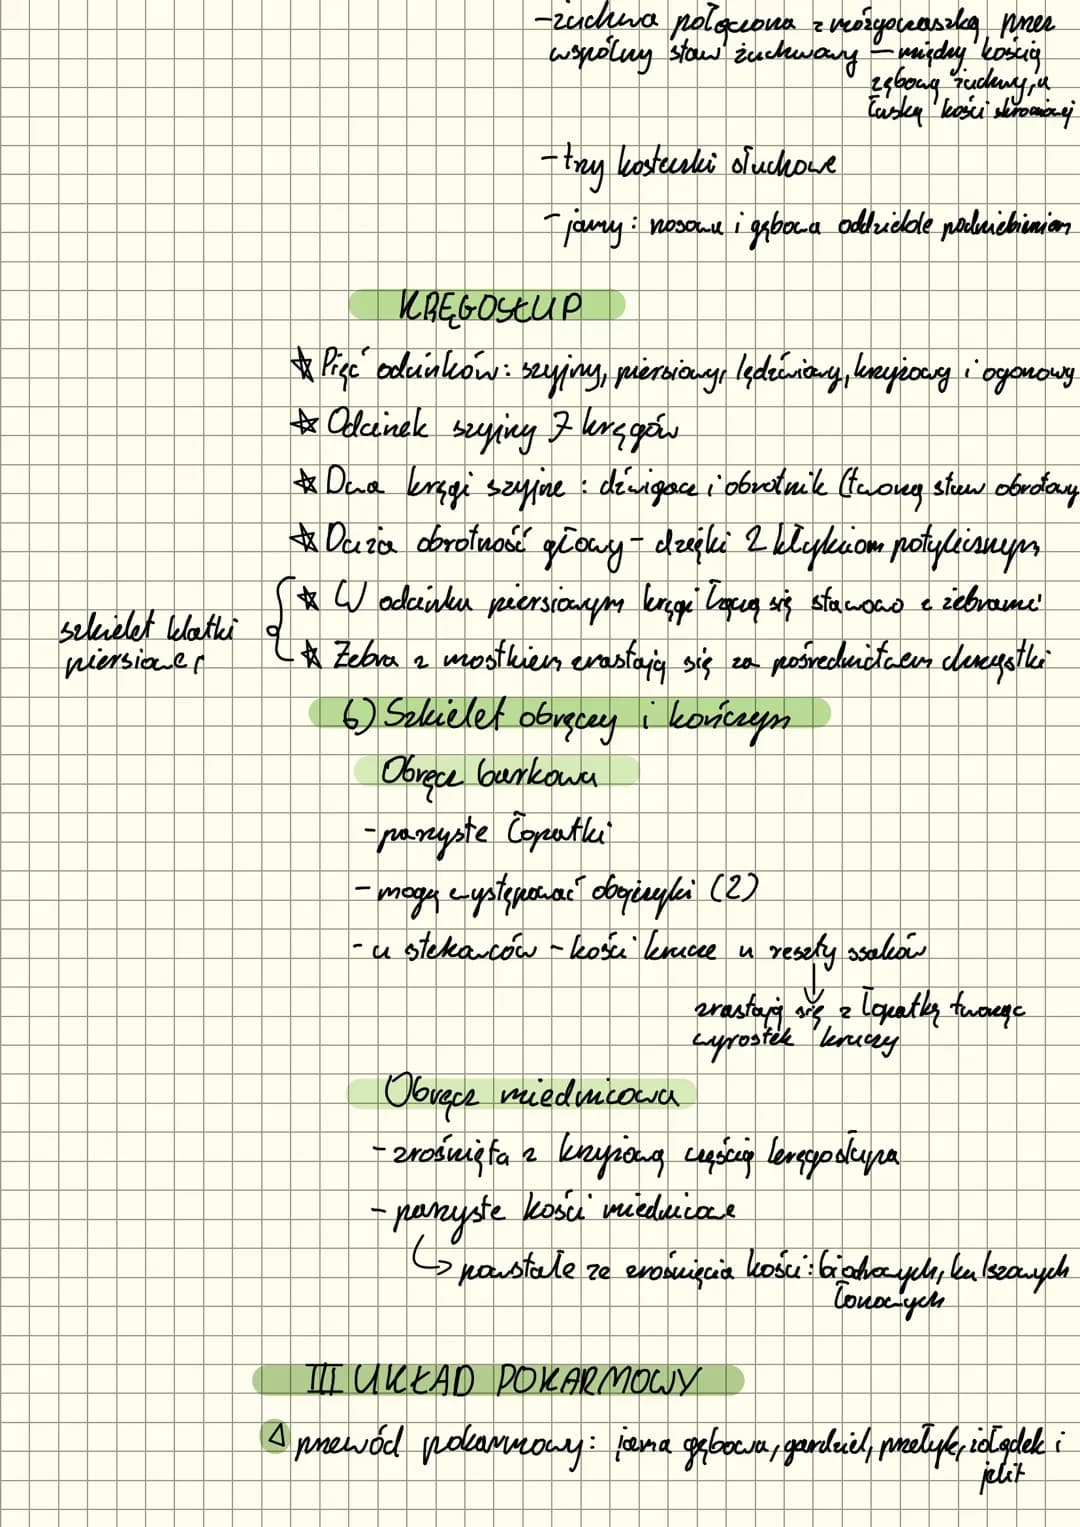 -żuchwa połączona z mózgoczaszką przez
wspólny staw żuchwowy – między kością
zębową żuchwy, a
łuską kości skroniowej
-trzy kosteczki słuchowe
- jamy: nosowa i gębowa oddzielone podniebieniem
KRĘGOSŁUP
☆ Pięć odcinków: szyjny, piersiowy, lędźwiowy, krzyżowy i ogonowy
☆ Odcinek szyjny 7 kręgów
☆ Dwa kręgi szyjne: dźwigacz i obrotnik (tworzą staw obrotowy
☆ Duża obrotność głowy – dzięki 2 kłykciom potylicznym
☆ W odcinku piersiowym kręgi łączą się stawowo z żebrami
szkielet klatki
piersiowej
☆ Żebra z mostkiem zrastają się za pośrednictwem chrząstki
6) Szkielet obręczy i kończyn
Obręcz barkowa
-parzyste łopatki
- mogą występować obojczyki (2)
- u stekowców – kości krucze u reszty ssaków
↓
zrastają się z łopatką tworząc
wyrostek kruczy
Obręcz miednicowa
- zrośnięta z krzyżową częścią kręgosłupa
- parzyste kości miedniczne
↳ powstałe ze zrośnięcia kości: biodrowych, kulszowych
łonowych
III UKŁAD POKARMOWY
△ przewód pokarmowy: jama gębowa, gardziel, przełyk, żołądek i
jelit